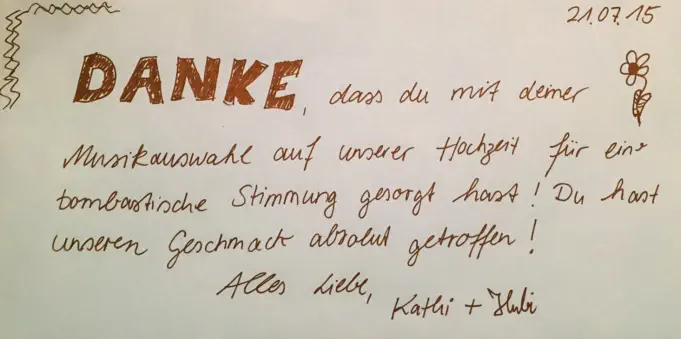 21.07.15
DANKE, dass du mit deiner
Musikauswahl auf unserer Hochzeit für eine
bombastische Stimmung gesorgt hast! Du hast
unseren Geschmack absolut getroffen!
Alles Liebe,
Kathi + Hubi